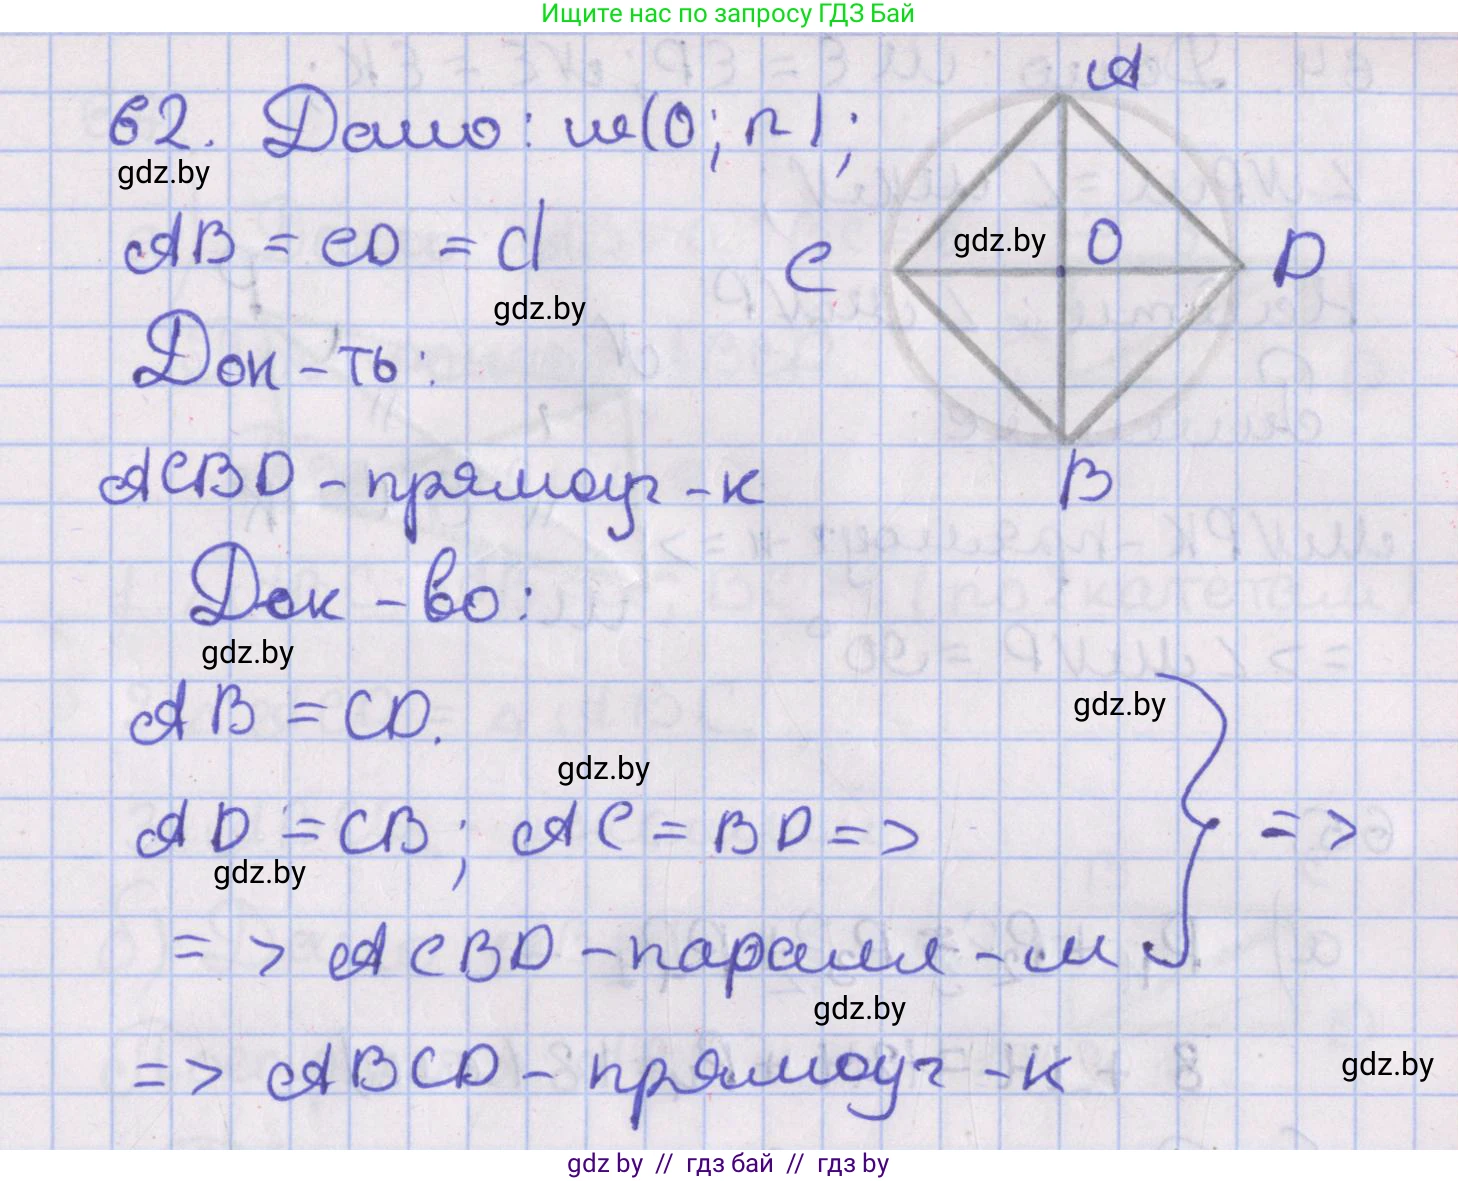 Ищите нас по запросу ГДЗ Бай
62. Дано: ω(O; r);
gdz.by
AB = CD = d
gdz.by
Док-ть:
ACBD - прямоуг-к
Док-во:
gdz.by
AB = CD.
gdz.by
gdz.by
AD = CB; AC = BD =>
=>
gdz.by
=> ACBD - паралл-м
gdz.by
=> ABCD - прямоуг-к
gdz.by
A
gdz.by
O
C
D
B
gdz by // гдз бай // гдз by